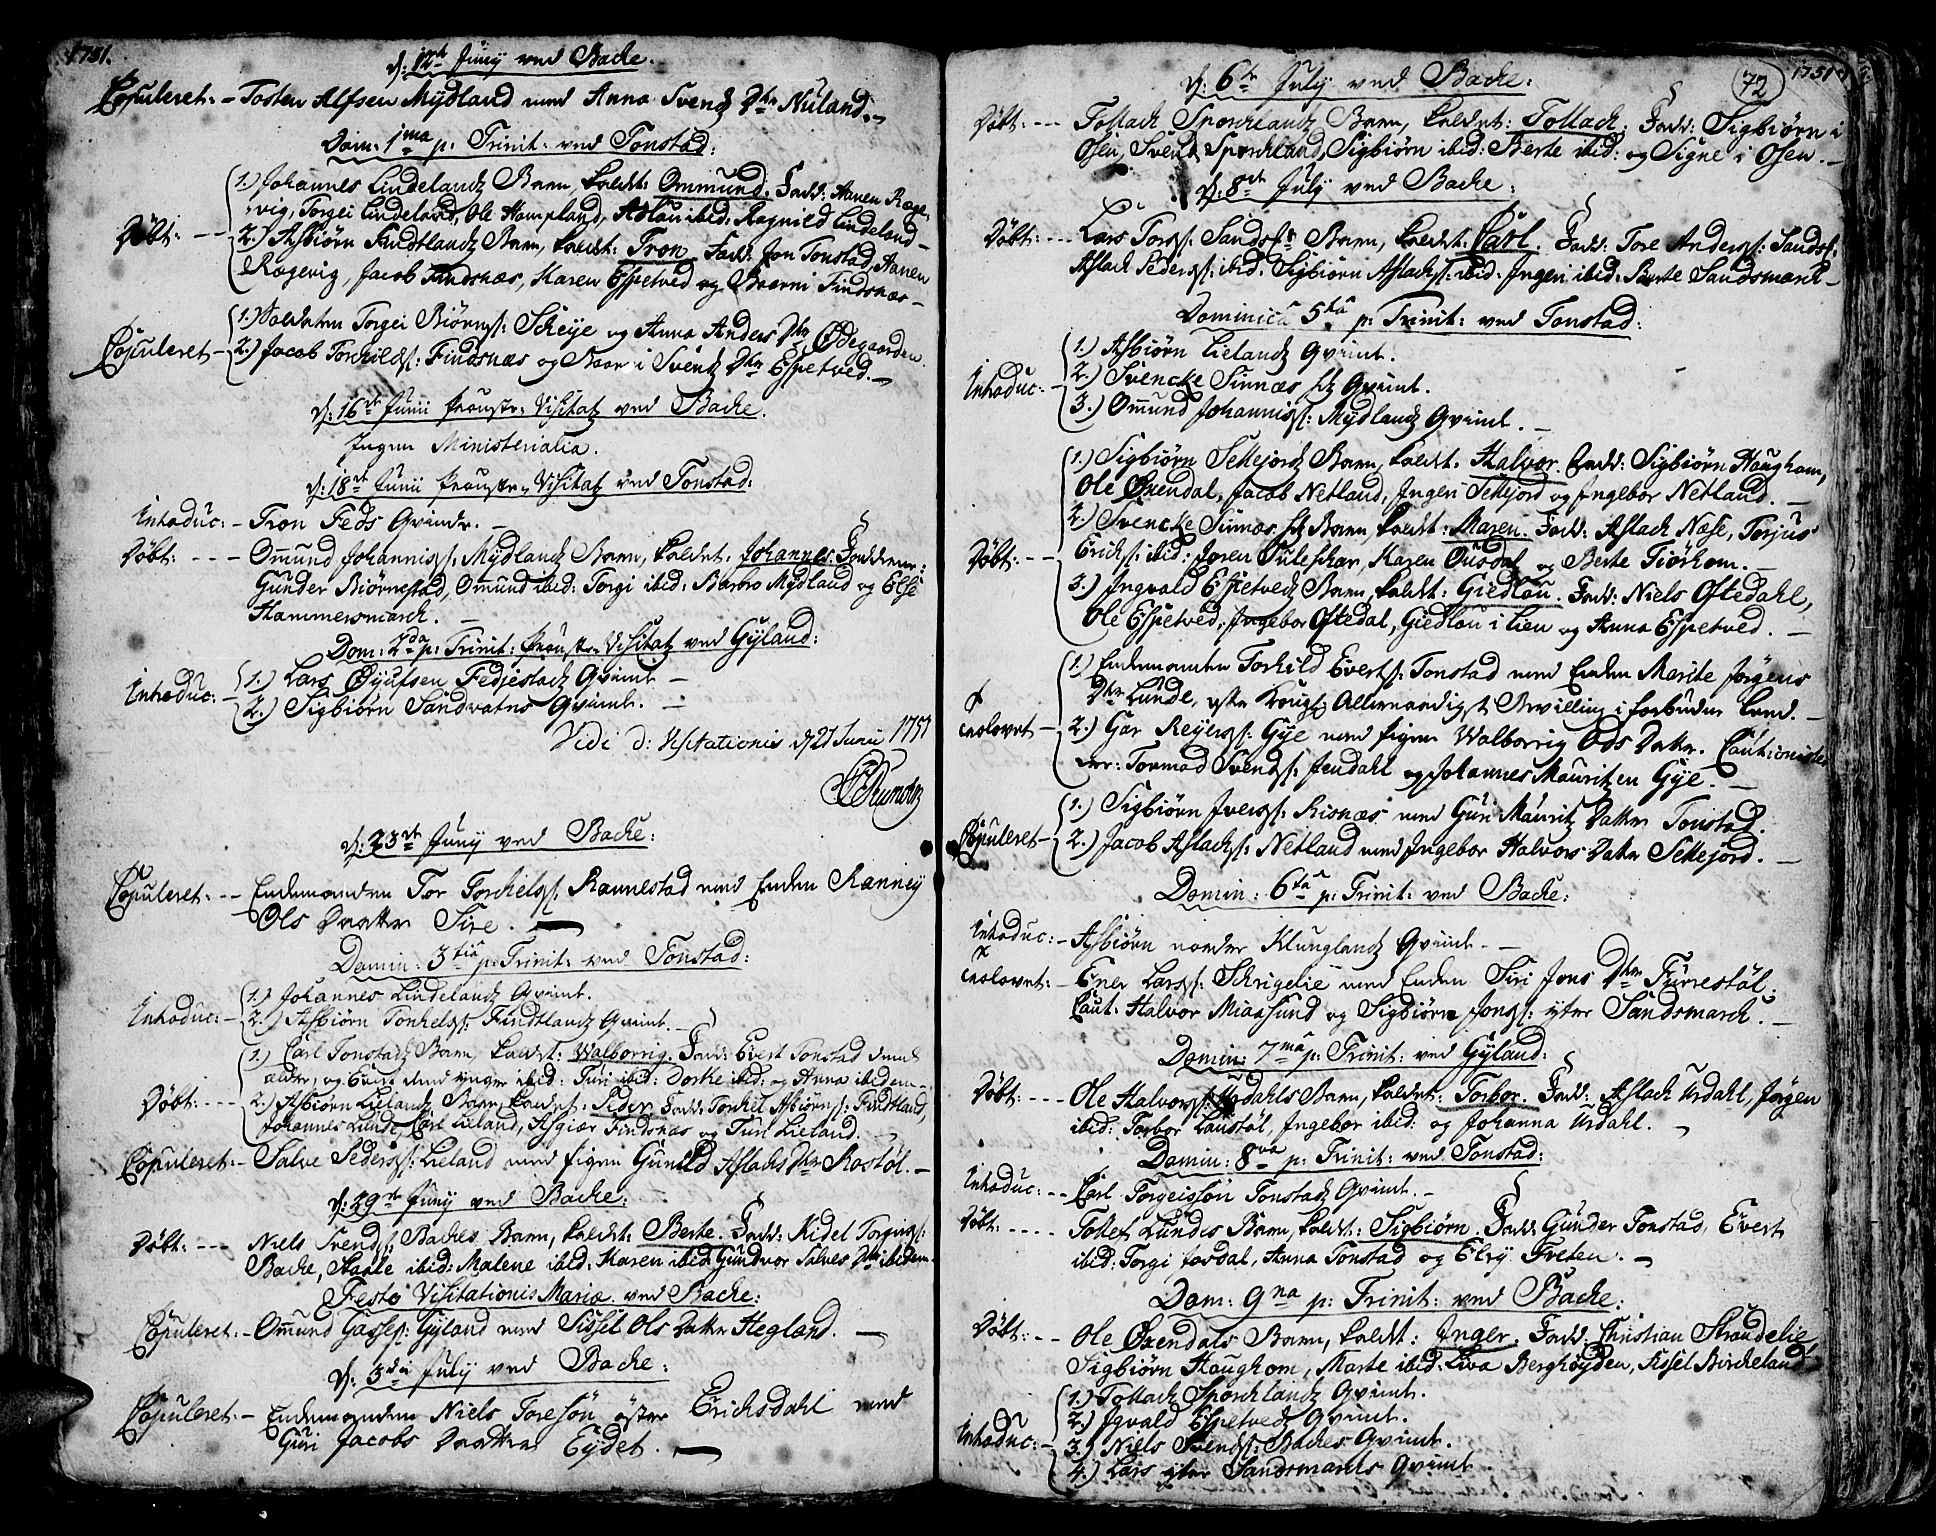 1751.
d: 12te Junij ved Backe.
Copuleret: - Tosten Alfsen Mydland med Anna Svends Dtr Nuland.
Dom: 1ma p: Trinit: ved Tonstad:
1.) Johannes Lindelands Barn, kaldet: Ommund. Fadd: Aanen Røge-
vig, Torgei Lindeland, Ole Hompland, Aslau ibid: Ragnild Lindeland
Døbt: - - 2.) Asbiørn Findtlands Barn, kaldet: Tron. Fadd: Jon Tonstad, Aanen
Røgevig, Jacob Findsnæs, Karen Espetved og Baarni Findsnæs
1.) Soldaten Torgei Biørns: Scheye og Anna Anders Dtr Ødegaarden
Copuleret - 2.) Jacob Torkilds: Findsnæs og Baarni Svends Dtr Espetved.
d: 16de Junii Proustr: Visitatz ved Backe.
Ingen Ministerialia.
d: 18de Junii Proustr: Visitatz ved Tonstad:
Introduc: - Tron Feds Qvinde.
Døbt: - - - Omund Johannis: Mydlands Barn, kaldet: Johannes. Fadderne:
Gunder Biørnestad, Omund ibid: Torgi ibid: Barbro Mydland og Else
Hammersmarck.
Dom: 2da p: Trinit: Proustr: Visitatz ved Gyland:
1.) Lars Øyufsen Fedjestads Qvinde
Introduc: - 2.) Sigbiørn Sandvatns Qvinde.
Vidi d: Visitationis d 21 Junii 1751
d: 23de Junij ved Backe:
Copuleret: - - Enkemanden Tor Torkels: Rannestad med Enken Ranney
Ols Daatter Sire.
Domin: 3tia p: Trinit: ved Tonstad:
1.) Johannes Lindelands Qvinde.
Introduc: - 2.) Asbiørn Tonkels: Findtlands Qvinde.
1.) Carl Tonstads Barn, kaldet: Walborrig. Fadd: Evert Tonstad den
ældre, og Evert den yngre ibid: Turi ibid: Dorte ibid: og Anna ibidem
Døbt: - - - 2.) Asbiørn Lielands Barn, kaldet: Peder. Fadd: Tonkel Asbiørns: Findtland,
Johannes Lunde, Carl Lieland, Asgier Findsnæs og Turi Lieland.
Copuleret: - Salve Peders: Lieland med Pigen Gunild Aslachs Dtr Rostøl.
d: 29de Junij ved Backe:
Døbt: - - - Niels Svends: Backes Barn, kaldet: Berte. Fadd: Kidel Torgius:
Backe, Staale ibid: Malene ibid: Karen ibid: Gundvor Salves Dtr ibidem
Festo Visitationis Mariæ ved Backe:
Copuleret: - Omund Gasses: Gyland med Sissel Ols Datter Hegland.
d: 3die July ved Backe:
Copuleret: - Enkemanden Niels Toresøn øster Ericksdahl med
Guri Jacobs Daatter Eydet.
72
1751.
d: 6te July ved Backe:
Døbt: - - - Tollach Sporcklands Barn, kaldet: Tollach. Fadd: Sigbiørn i
Osen, Svend Sporckland, Sigbiørn ibid: Berte ibid: og Signe i Osen.
d: 8de July ved Backe:
Døbt: - - - Lars Tores: Sandsm: Barn, kaldet: Carl. Fadd: Tore Anders: Sandsm:
Aslach Peders: ibid: Sigbiørn Aslachs: ibid: Ingeri ibid: Berte Sandsmarck
Dominica 5ta p: Trinit: ved Tonstad:
1.) Asbiørn Lielands Qvinde.
Introduc: - 2.) Svencke Sinnæs Qvinde.
3.) Omund Johannis: Mydlands Qvinde.
1.) Sigbiørn Sellejords Barn, kaldet. Halvor. Fadd: Sigbiørn Haughom,
Ole Øxendal, Jacob Netland, Ingeri Sellejord og Ingebor Netland.
2.) Svencke Sinnæs Barn, kaldet: Maren. Fadd: Aslach Nese, Torjus
Døbt: - - Erichs: ibid: Joren Sulepher, Karen Ousdal og Berte Tiørhom.
3.) Ingvald Espetveds Barn, kaldet: Giedlou. Fadd: Niels Oftedahl,
Ole Espetved, Ingebor Oftedal, Giedlou i Lien og Anna Espetved.
1.) Enkemanden Torkild Everts: Tonstad med Enken Marite Jørgens
Dtr Lunde, efter Kongl: Allernaadigst Bevilling i forbuden Leed.
Trolovet - 2.) Gar Reyers: Gye med Pigen Walborrig Ods Datter. Cautionister
er: Tormod Svends: Jendahl og Johannes Mauritzen Gye.
1.) Sigbiørn Ivers: Risnæs med Guri Mauritz Datter Tonstad.
Copuleret - 2.) Jacob Aslachs: Netland med Ingebor Halvors Datter Sellejord.
Domin: 6ta p: Trinit: ved Backe:
Introduc: - Asbiørn nordre Klunglands Qvinde.
Trolovet: - Ener Lars: Skregelie med Enken Siri Jons Dtr Furrestøl.
Caut: Halvor Miaasund og Sigbiørn Jons: yter Sandsmarck.
Domin: 7ma p: Trinit: ved Gyland:
Døbt: - - - Ole Halvors: Urdahls Barn, kaldet: Torbor. Fadd: Aslach Urdahl, Jørgen
ibid: Torbor Laustøl, Ingebor ibid: og Johanna Urdahl.
Domin: 8va p: Trinit: ved Tonstad:
Introduc: - - Carl Torgeissøn Tonstads Qvinde.
Døbt: - - - - Tollef Lundes Barn, kaldet: Sigbiørn. Fadd: Gunder Tonstad, Evert
ibid: Torgi Josdal, Anna Tonstad og Elry Freten.
Dom: 9na p: Trinit: ved Backe:
Døbt: - - Ole Øxendals Barn, kaldet: Inger. Fadd: Christian Strandelie
Sigbiørn Haughom, Marte ibid: Liva Berghøyden, Sissel Birckeland
1.) Tollach Sporcklands Qvinde.
2.) Igvald Espetveds Qvinde.
Introduc: - 3.) Niels Svends: Backes Qvinde.
4.) Lars yter Sandsmarcks Qvinde